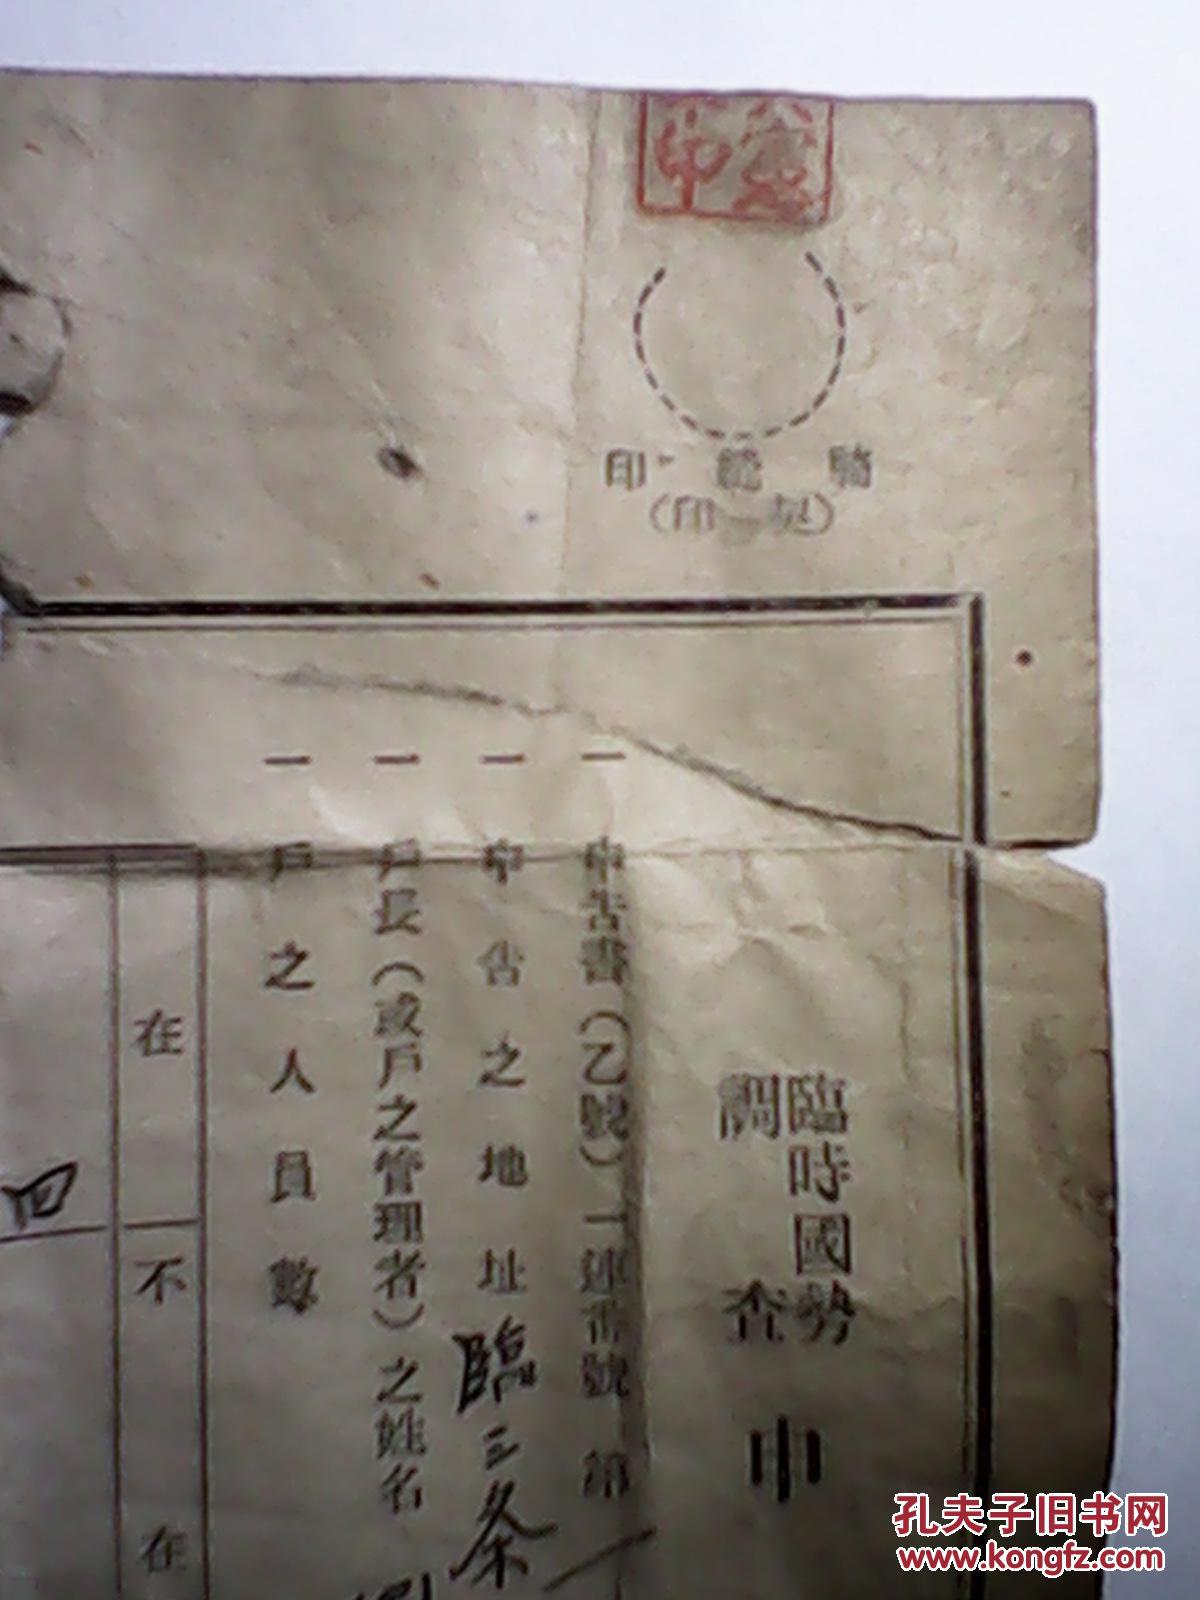 騎縫印
(印契)
臨時國勢
調查
申
一 申告書(乙號)一連番號 第
一 申告之地址 臨三条
一 戶長(或戶之管理者)之姓名
一 戶之人員數
在
不在
四
孔夫子旧书网
www.kongfz.com